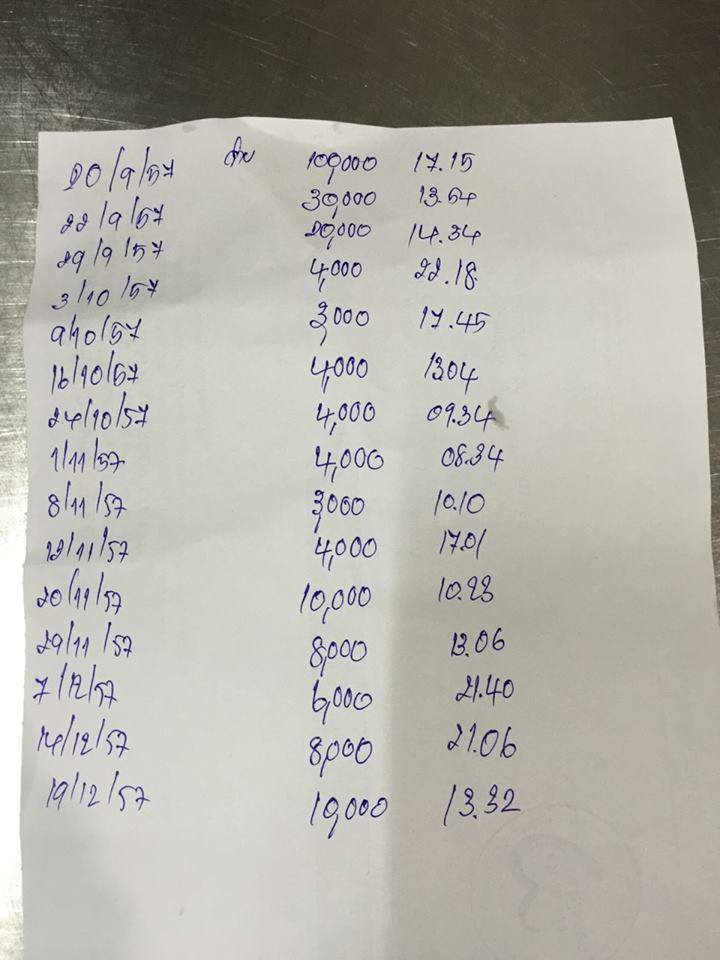 20/9/57 100,000 17.15
22/9/57 30,000 13.54
29/9/57 20,000 14.34
3/10/57 4,000 22.18
9/10/57 3,000 17.45
16/10/57 4,000 13.04
24/10/57 4,000 09.34
1/11/57 4,000 08.34
8/11/57 3,000 10.10
12/11/57 4,000 17.01
20/11/57 10,000 10.23
29/11/57 8,000 13.06
7/12/57 6,000 21.40
14/12/57 8,000 21.06
19/12/57 10,000 13.32